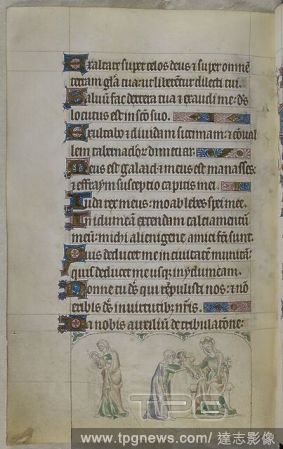 Exaltare super celos deus ⁊ super omnē
terram gl̄a tua: ut liberentur dilecti tui.
Saluū fac dextera tua ⁊ exaudi me: d̄s
locutus est in sc̄o suo.
Exultabo ⁊ diuidam sicimam: ⁊ conuall
lem tabernaclor dimetiar.
Meus est galaad ⁊ meus est manasses:
⁊ effraym susceptio capitis mei.
Iuda rex meus: moab lebes spei mee.
In idumeam extendam calciamentū
meū: michi alienigene amici facti sunt.
Quis deducet me in ciuitatē munitā:
quis deducet me usq; in ydumeam.
Nonne tu d̄s qui reppulisti nos: ⁊ nō
exibis d̄s in uirtutib; nr̄is.
Da nobis auxiliū de tribulatōne:
TPG
www.tpgnews.com/ 達志影像